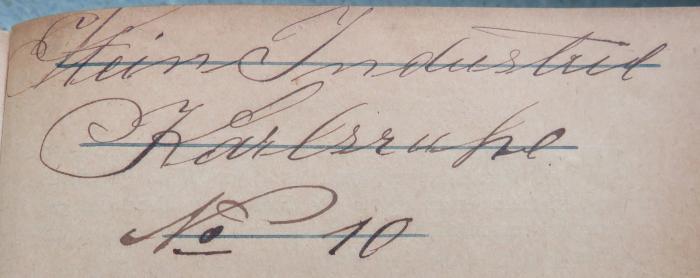 Stein Industrie
Karlsruhe
No 10